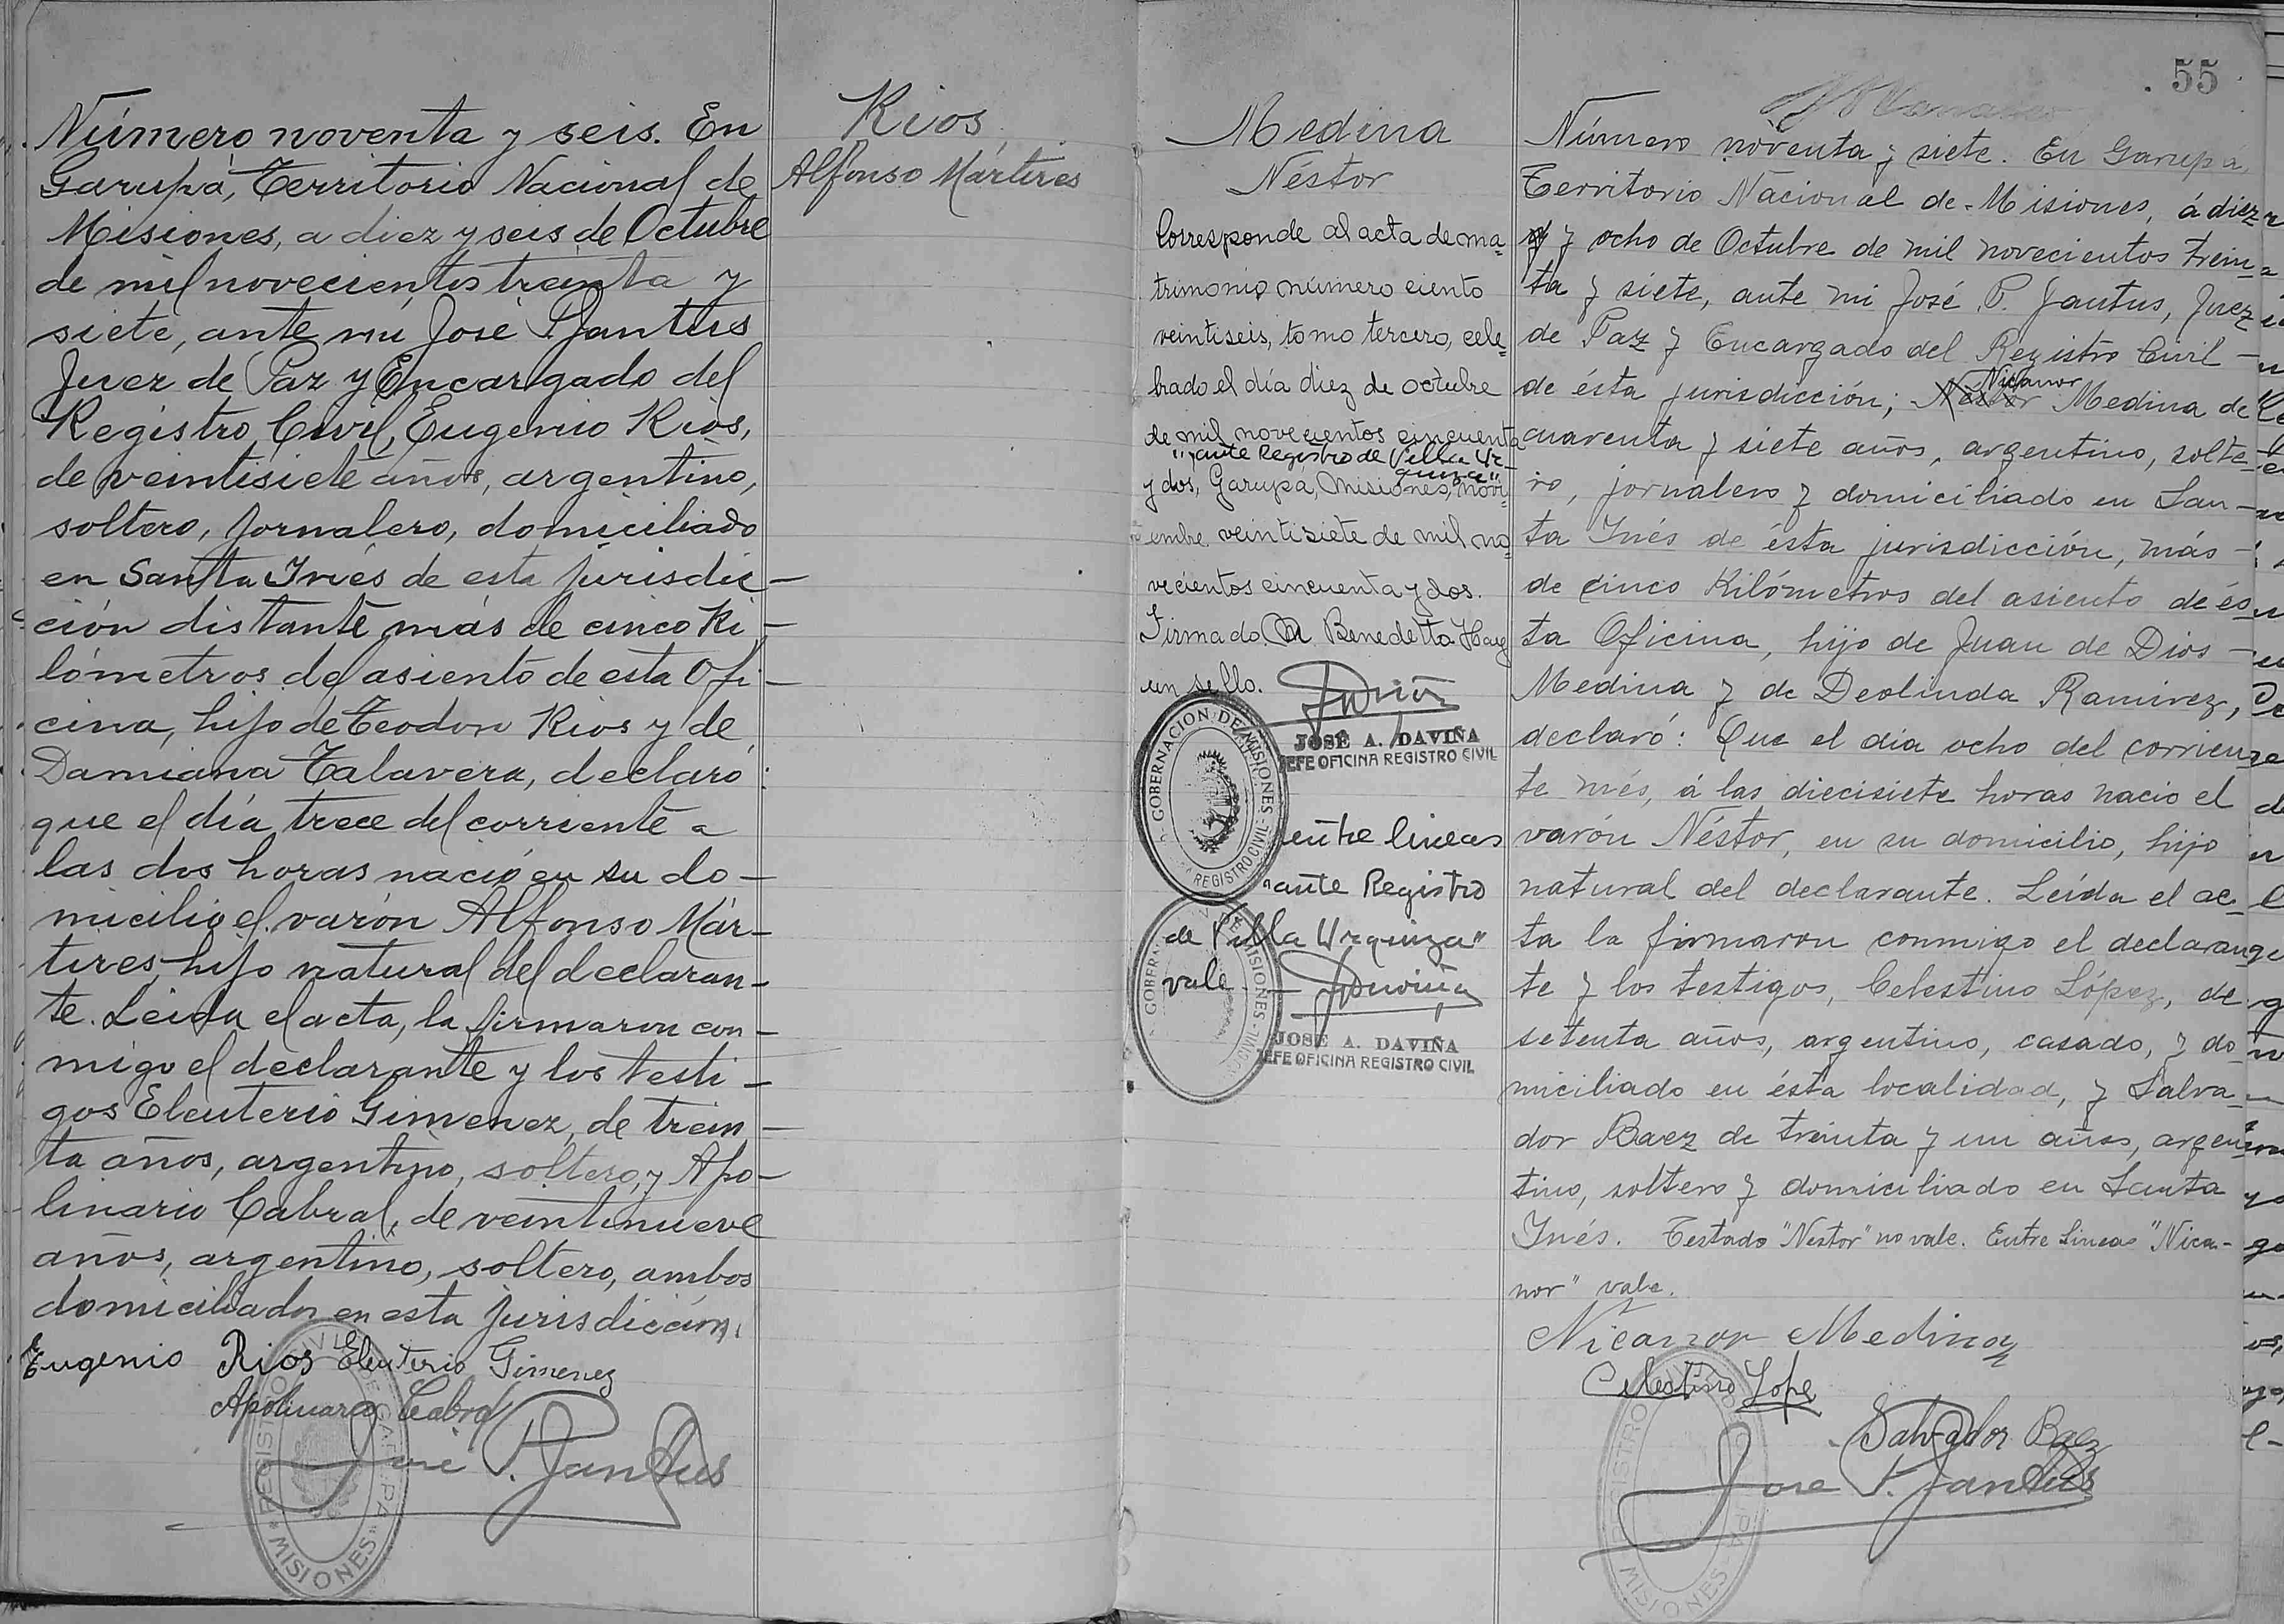 Número noventa y seis. En
Garupá, Territorio Nacional de
Misiones, a diez y seis de Octubre
de mil novecientos treinta y
siete, ante mi José P. Jantus
Juez de Paz y Encargado del
Registro Civil, Eugenio Rios,
de veintisiete años, argentino,
soltero, jornalero, domiciliado
en Santa Inés de esta jurisdic-
ción distante más de cinco Ki-
lómetros del asiento de esta Ofi-
cina, hijo de Teodoro Rios y de
Damiana Talavera, declaró:
que el día trece del corriente a
las dos horas nació en su do-
micilio el varón Alfonso Már-
tires hijo natural del declaran-
te. Leida el acta, la firmaron con-
migo el declarante y los testi-
gos Eleuterio Gimenez, de trein-
ta años, argentino, soltero, y Apo-
linario Cabral, de veintinueve
años, argentino, soltero, ambos
domiciliados en esta jurisdicción.
Eugenio Rios Eleuterio Gimenez
Apolinario Cabral
José P. Jantus
REGISTRO CIVIL DE GARUPA
MISIONES
Rios
Alfonso Mártires
Medina
Néstor
Corresponde al acta de ma-
trimonio número ciento
veintiseis, tomo tercero, cele-
brado el día diez de octubre
de mil novecientos cincuenta
"ante Registro de Villa Ur-
quiza"
y dos, Garupa, Misiones, novi-
embre veintisiete de mil no-
vecientos cincuenta y dos.
Firmado M Benedetto Hay
un sello.
JOSÉ A. DAVIÑA
JEFE OFICINA REGISTRO CIVIL
GOBERNACION DE MISIONES
REGISTRO CIVIL
entre lineas
"ante Registro
de Villa Urquiza"
vale
JOSÉ A. DAVIÑA
JEFE OFICINA REGISTRO CIVIL
55
Número noventa y siete. En Garupá,
Territorio Nacional de Misiones, á diez
y ocho de Octubre de mil novecientos trein-
ta y siete, ante mi José P. Jantus, Juez
de Paz y Encargado del Registro Civil -
Nicanor
de ésta jurisdicción; Néstor Medina de
cuarenta y siete años, argentino, solte-
ro, jornalero y domiciliado en San-
ta Inés de ésta jurisdicción, más -
de cinco Kilómetros del asiento de és-
ta Oficina, hijo de Juan de Dios -
Medina y de Deolinda Ramirez,
declaró: Que el día ocho del corrien-
te més, á las diecisiete horas nacio el
varón Néstor, en su domicilio, hijo
natural del declarante. Leída el ac-
ta la firmaron conmigo el declaran-
te y los testigos, Celestino López, de
setenta años, argentino, casado, y do-
miciliado en ésta localidad, y Salva-
dor Baez de treinta y un años, argen-
tino, soltero y domiciliado en Santa
Inés. Testado "Nestor" no vale. Entre Lineas "Nica-
nor" vale.
Nicanor Medina
Celestino Lope
Salvador Baez
Jose P. Jantus
MISIONES